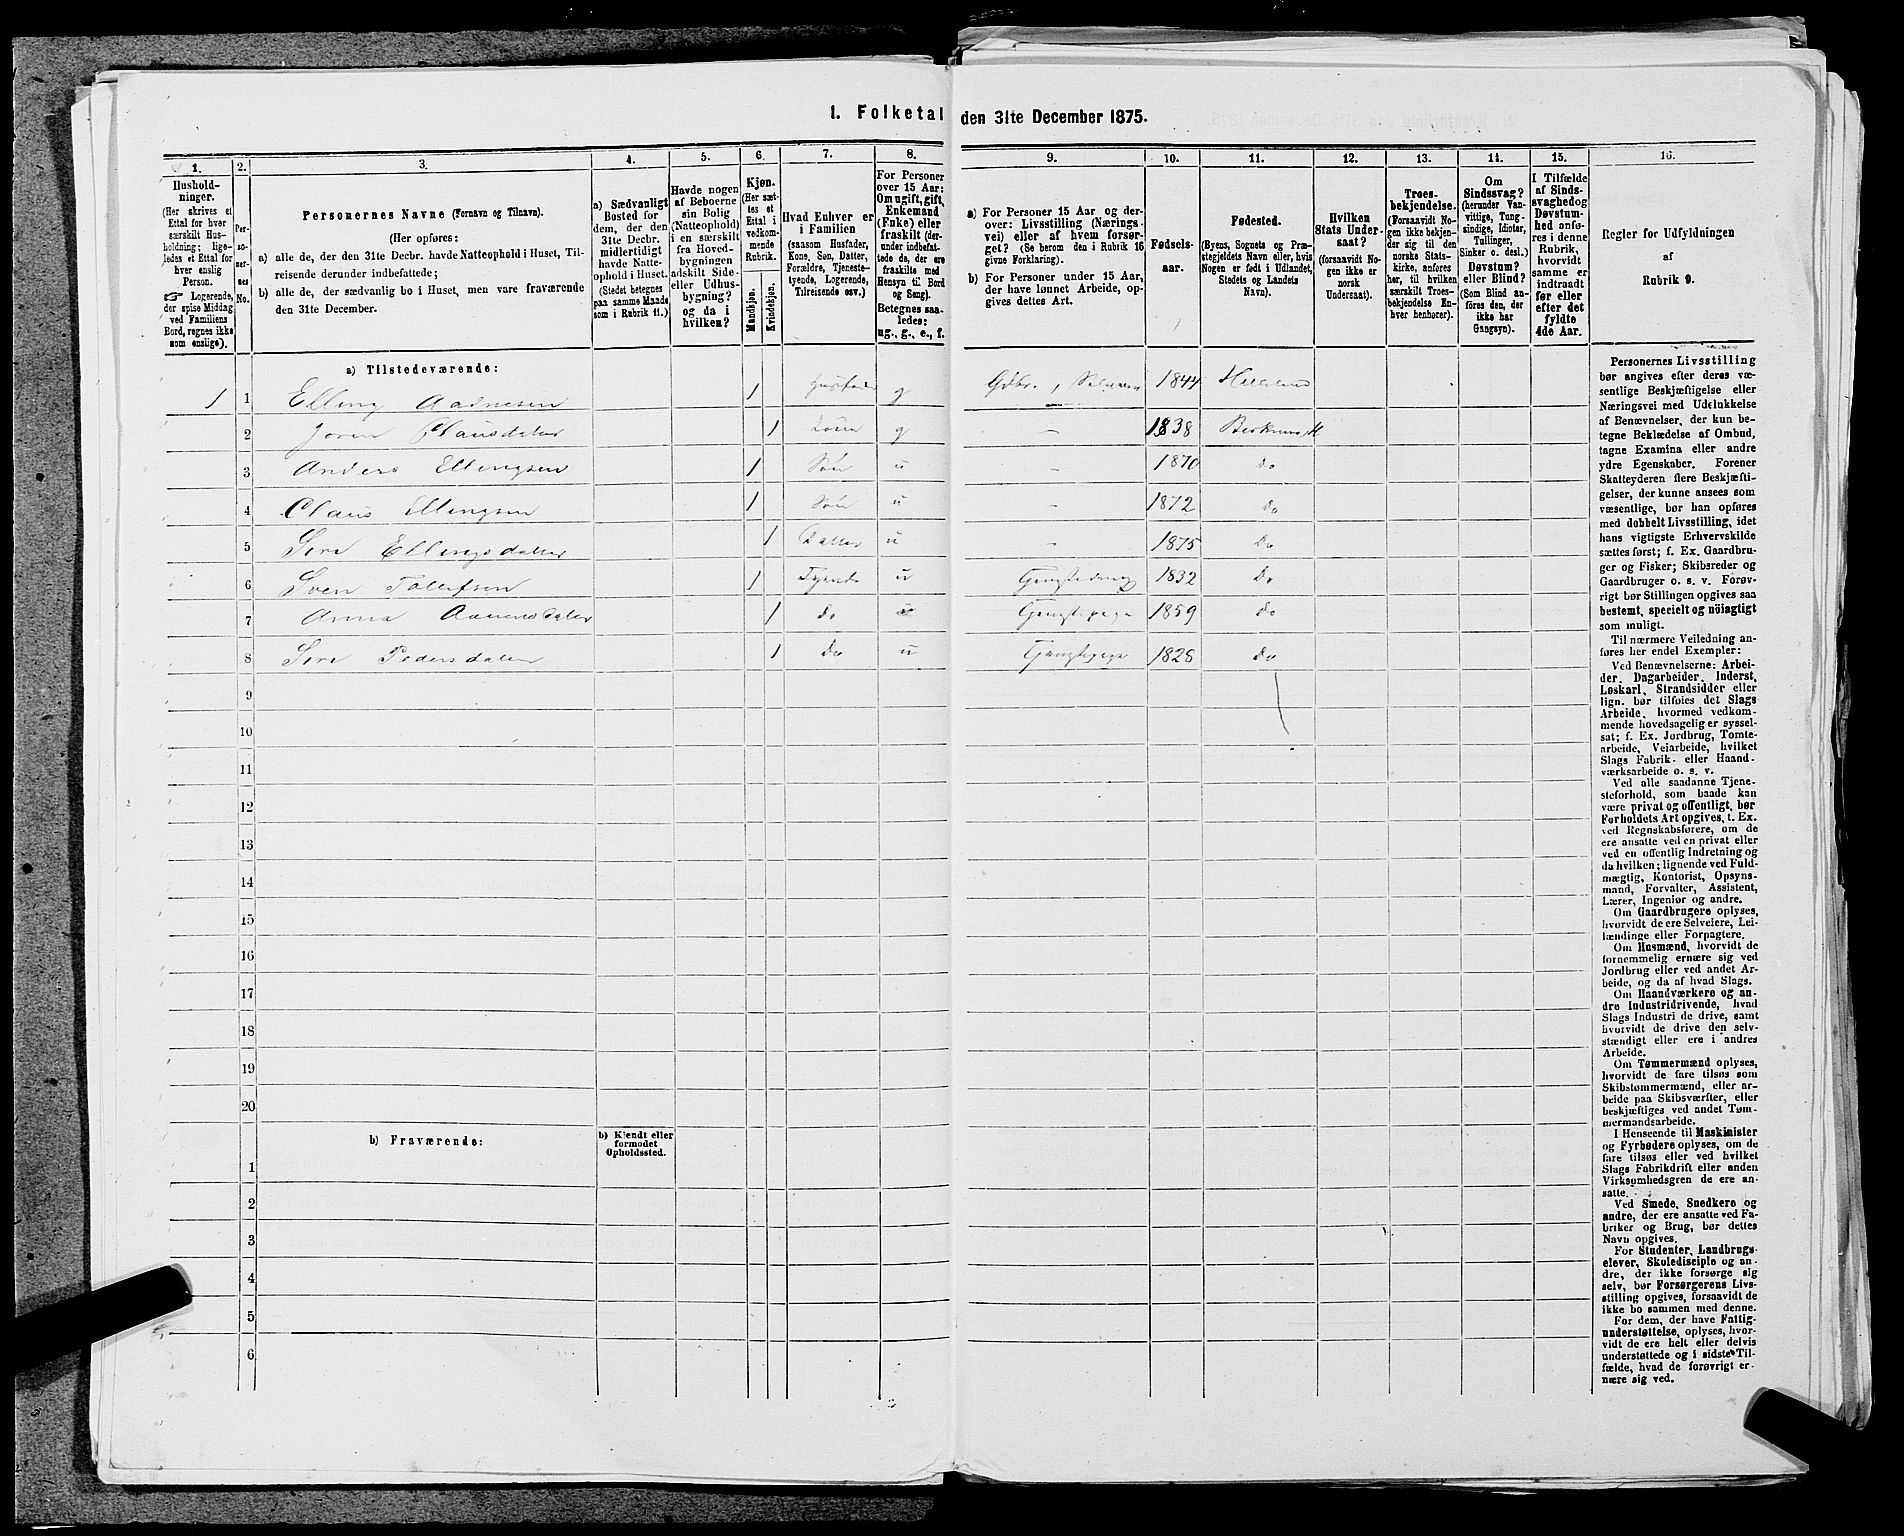 1. Folketal den 31te December 1875.
1. 2. 3. 4. 5. 6. 7. 8. 9. 10. 11. 12. 13. 14. 15. 16.
Husholdninger.
(Her skrives et
Ettal for hver
særskilt Hus-
holdning; lige-
ledes et Ettal for
hver enslig
Person.
☞ Logerende,
der spise Middag
ved Familiens
Bord, regnes ikke
som enslige).
Per-
so-
ner-
nes
No.
Personernes Navne (Fornavn og Tilnavn).
(Her opføres:
a) alle de, der den 31te Decbr. havde Natteophold i Huset, Til-
reisende derunder indbefattede;
b) alle de, der sædvanlig bo i Huset, men vare fraværende
den 31te December.
a) Sædvanligt
Bosted for
dem, der den
31te Decbr.
midlertidigt
havde Natte-
ophold i Huset.
(Stedet betegnes
paa samme Maade
som i Rubrik 11.)
Havde nogen
af Beboerne
sin Bolig
(Natteophold)
i en særskilt
fra Hoved-
bygningen
adskilt Side-
eller Udhus-
bygning?
og da i
hvilken?
Kjøn.
(Her sæt-
tes et
Ettal i
vedkom-
mende
Rubrik.
Mandkjøn.
Kvindekjøn.
Hvad Enhver er
i Familien
(saasom Husfader,
Kone, Søn, Datter,
Forældre, Tjeneste-
tyende, Logerende,
Tilreisende osv.)
For Personer
over 15 Aar:
Om ugift, gift,
Enkemand
(Enke) eller
fraskilt (der-
under indbefat-
tede de, der ere
fraskilte med
Hensyn til Bord
og Seng).
Betegnes saa-
ledes:
ug., g., e., f.
a) For Personer 15 Aar og der-
over: Livsstilling (Nærings-
vei) eller af hvem forsør-
get? (Se herom den i Rubrik 16
givne Forklaring).
b) For Personer under 15 Aar,
der have lønnet Arbeide, op-
gives dettes Art.
Fødsels-
aar.
Fødested.
(Byens, Sognets og Præ-
stegjeldets Navn eller, hvis
Nogen er født i Udlandet,
Stedets og Landets
Navn).
Hvilken
Stats Under-
saat?
(forsaavidt No-
gen ikke er
norsk
Undersaat).
Troes-
bekjendelse.
(Forsaavidt No-
gen ikke bekjen-
der sig til den
norske Stats-
kirke, anføres
her, til hvilken
særskilt Troes-
bekjendelse En-
hver henhører).
Om
Sindssvag?
(herunder Van-
vittige, Tung-
sindige, Idioter,
Tullinger,
Sinker o. desl.)
Døvstum?
eller Blind?
(Som Blind an-
føres den, der
ikke har
Gangsyn).
I Tilfælde
af Sinds-
svaghed og
Døvstum-
hed anfø-
res i denne
Rubrik,
hvorvidt
samme er
indtraadt
før eller
efter det
fyldte
4de Aar.
Regler for Udfyldningen
af
Rubrik 9.
a) Tilstedeværende:
1 1 Elling Aadnesen 1 Husfader g Gdbr., Selveier 1844 Helleland
2 Joren Clausdatter 1 Kone g – 1838
3 Anders Ellingsen 1 Søn u – 1870 Do
4 Claus Ellingsen 1 Søn u – 1872 Do
5 Siri Ellingsdatter 1 Datter u – 1875 Do
6 Sven Tollefsen 1 Tyende u 1832 Do
7 Anna 1 Do u 1859 Do
8 Siri Pedersdatter 1 Do u 1828 Do
9
10
11
12
13
14
15
16
17
18
19
20
b) Fraværende:
b) Kjendt eller
formodet
Opholdssted.
1
2
3
4
5
6
Personernes Livsstilling
bør angives efter deres væ-
sentlige Beskjæftigelse eller
Næringsvei med Udelukkelse
af Benævnelser, der kun be-
tegne Beklædelse af Ombud,
tagne Examina eller andre
ydre Egenskaber. Forener
Skatteyderen flere Beskjæfti-
gelser, der kunne ansees som
væsentlige, bør han opføres
med dobbelt Livsstilling, idet
hans vigtigste Erhvervskilde
sættes først; f. Ex. Gaardbru-
ger og Fisker; Skibsreder og
Gaardbruger o. s. v. Forøv-
rigt bør Stillingen opgives saa
bestemt, specielt og nöiagtigt
som muligt.
Til nærmere Veiledning an-
føres her endel Exempler:
Ved Benævnelserne: Arbei-
der, Dagarbeider, Inderst,
Løskarl, Strandsidder eller
lign. bør tilføies det Slags
Arbeide, hvormed vedkom-
mende hovedsagelig er syssel-
sat; f. Ex. Jordbrug, Tomte-
arbeide, Veiarbeide, hvilket
Slags Fabrik- eller Haand-
værksarbeide o. s. v.
Ved alle saadanne Tjene-
steforhold, som baade kan
være privat og offentligt, bør
Forholdets Art opgives, t. Ex.
ved Regnskabsførere, om de
ere ansatte ved en privat eller
ved en offentlig Indretning og
da hvilken; lignende ved Fuld-
mægtig, Kontorist, Opsyns-
mand, Forvalter, Assistent,
Lærer, Ingeniør og andre.
Om Gaardbrugere oplyses,
hvorvidt de ere Selveiere, Lei-
lændinge eller Forpagtere.
Om Husmænd, hvorvidt de
fornemmelig ernære sig ved
Jordbrug eller ved andet Ar-
beide, og da af hvad Slags.
Om Haandværkere og an-
dre Industridrivende, hvad
Slags Industri de drive, samt
hvorvidt de drive den selv-
stændigt eller ere i andres
Arbeide.
Om Tømmermænd oplyses,
hvorvidt de fare tilsøs som
Skibstømmermænd, eller ar-
beide paa Skibsværfter, eller
beskjæftiges ved andet Tøm-
mermandsarbeide.
I Henseende til Maskinister
og Fyrbødere oplyses, om de
fare tilsøs eller ved hvilket
Slags Fabrikdrift eller anden
Virksomhedsgren de ere an-
satte.
Ved Smede, Snedkere og
andre, der ere ansatte ved Fa-
briker og Brug, bør dettes
Navn opgives.
For Studenter, Landbrugs-
elever, Skoledisciple og an-
dre, der ikke forsørge sig
selv, bør Forsørgerens Livs-
stilling opgives, forsaavidt de
ikke bo sammen med denne.
For dem, der have Fattig-
understøttelse, oplyses, hvor-
vidt de ere helt eller delvis
understøttede og i sidste Til-
fælde, hvad de forøvrigt er-
nære sig ved.